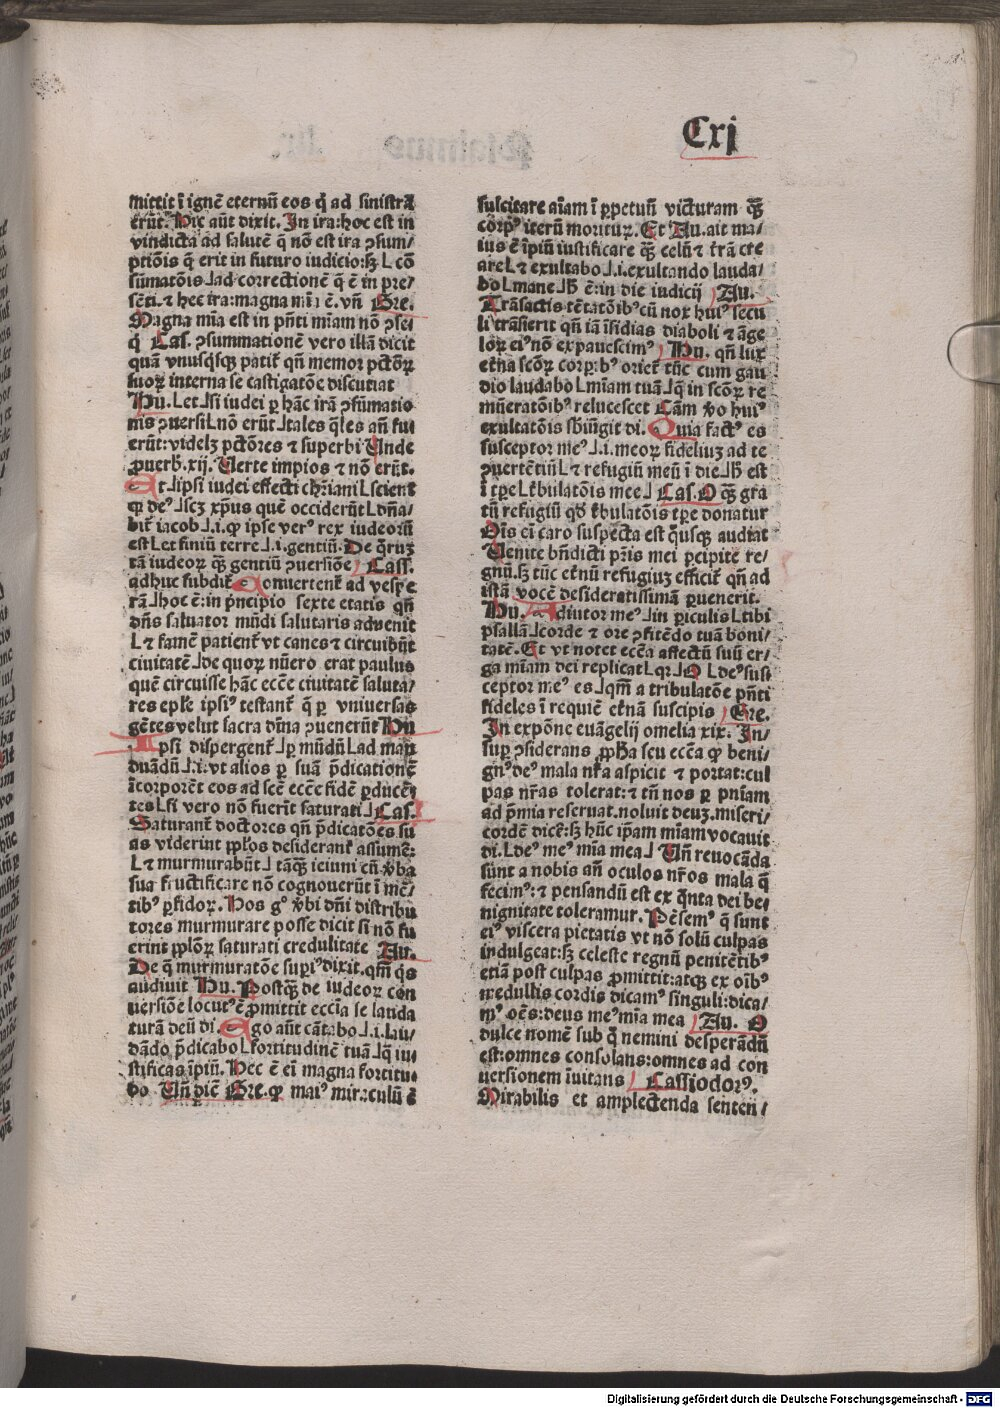 Cxj
mittit ī ignē eternū eos q̄ ad sinistrā
erūt. Hic aūt dixit. In ira: hoc est in
vindicta ad salutē q̄ nō est ira ꝯsum/
ptiōis q̄ erit in futuro iudicio: sꝫ L cō
sūmatōis ⅃ ad correctionē q̄ ē in pre/
sēti. ⁊ hec ira: magna mīa ē. vn̄ Gre.
Magna mīa est in pn̄ti mīam nō ꝯseq̄
q̄ Cas. ꝯsummationē vero illā dicit
quā vnusqͥsqꝫ patit᷑ qn̄ memor pctōꝝ
suoꝝ interna se castigatōe discutiat
Hu. L et ⅃ si iudei ꝑ hāc irā ꝯsūmatio
nis ꝯuersi L nō erūt ⅃ tales q̄les an̄ fue
erūt: videlꝫ pctōres ⁊ superbi Unde
ꝓuerb̄. xij. Verte impios ⁊ nō erūt.
Et ⅃ ipsi iudei effecti chr̄iani L scient
qꝫ deꝰ ⅃ scꝫ xp̄us quē occiderūt L dn̄a/
bit᷑ iacob ⅃ .i. qꝫ ipse verꝰ rex iudeorū
est L et finiū terre ⅃ .i. gentiū. De q̄ruꝫ
tā iudeoꝝ qꝫ̄ gentiū ꝯuersiōe Cass.
adhuc subdit᷑ Conuertent᷑ ad vespe
rā ⅃ hoc ē: in pͥncipio sexte etatis qn̄
dn̄s saluator mūdi salutaris aduenit
L ⁊ famē patient᷑ vt canes ⁊ circuibūt
ciuitatē ⅃ de quoꝝ nūero erat paulus
quē circuisse hāc ecc̄e ciuitatē saluta/
res ep̄le ipsiꝰ testant᷑ q̄ ꝑ vniuersas
gētes velut sacra dīna ꝯuenerūt Hu
Ipsi dispergent᷑ ⅃ ꝑ mūdū L ad man
duādū ⅃ .i. vt alios ꝑ suā p̄dicationē
īcorporēt eos ad scē ecc̄e fidē ꝑducē/
tes L si vero nō fuerīt saturati ⅃ Cas.
Saturant᷑ doctores qn̄ p̄dicatōes su
as viderint pp̄los desiderant᷑ assume:
L ⁊ murmurabūt ⅃ tāqꝫ ieiuni cū v̄ba
sua fructificare nō cognouerūt ī mē/
tibꝰ ꝑfidoꝝ. Hos gͦ v̄bi dn̄i distribu
tores murmurare posse dicit si nō fu
erint pp̄loꝝ saturati credulitate Au.
De q̄ murmuratōe supiꝰ dixit. qm̄ qͥs
audiuit Hu. Postqꝫ̄ de iudeoꝝ con
uersiōe locutꝰ ē ꝓmittit ecc̄ia se lauda
turā deū di. Ego aūt cātabo ⅃ .i. lau/
dādo p̄dicabo L fortitudinē tuā ⅃ q̄ iu
stificas īpiū. Hec ē ei magna fortitu
do. Un̄ dic̄ Gre. qꝫ maiꝰ miraculū ē
suscitare aīam ī ꝑpetuū victuram qꝫ̄
corpꝰ iterū morituꝝ. Et Au. ait ma/
ius ē īpiū iustificare qꝫ̄ celū ⁊ t̄rā cre
are L ⁊ exultabo ⅃ .i. exultando lauda/
bo L mane ⅃ h̄ ē: in die iudicij Au.
Trāsactis tētatōibꝰ cū nox huiꝰ secu
li trāsierit qn̄ iā īsidias diaboli ⁊ āge
loꝝ eiꝰ nō expauescimꝰ Hu. qn̄ lux
et̄na scōꝝ corp: bꝰ oriet᷑ tūc cum gau
dio laudabo L mīam tuā ⅃ q̄ in scōꝝ re
mūeratōibꝰ relucescet Cām v̄o huiꝰ
exultatōis sbiūgit di. Quia factꝰ es
susceptor meꝰ ⅃ .i. meoꝝ fideliuꝫ ad te
ꝯuertētiū L ⁊ refugiū meū ī die ⅃ h̄ est
ī tp̄e L t̄bulatōis mee ⅃ Cas. O qꝫ̄ gra
tū refugiū qd̄ t̄bulatōis tp̄e donatur
Oīs ei caro suspecta est qͥusqꝫ audiat
Uenite bn̄dicti pr̄is mei ꝑcipite re/
gnū. sꝫ tūc et̄nū refugiuꝫ efficit᷑ qn̄ ad
istā vocē desideratissimā ꝑuenerit.
Hu. Adiutor meꝰ ⅃ in ꝑiculis L tibi
psallā ⅃ corde ⁊ ore ꝯfitēdo tuā boni/
tatē. Et vt notet ecc̄a affectū suū er/
ga mīam dei replicat L qꝛ ⅃ O L deꝰ susce
ceptor meꝰ es ⅃ qm̄ a tribulatōe pn̄ti
fideles ī requiē et̄nā suscipis Gre.
In expōne euāgelij omelia xix. In/
suꝑ ꝯsiderans ꝓpħa seu ecc̄a qꝫ beni/
gnꝰ deꝰ mala nr̄a aspicit ⁊ portat: cul
pas nr̄as tolerat: ⁊ tn̄ nos ꝑ pn̄iam
ad p̄mia reseruat. noluit deuꝫ. miseri/
cordē dicē: sꝫ hūc ip̄am mīam vocauit
di. L deꝰ meꝰ mīa mea ⅃ Un̄ reuocāda
sunt a nobis an̄ oculos nr̄os mala q̄
fecimꝰ: ⁊ pensandū est ex q̄nta dei be/
nignitate toleramur. Pēsemꝰ q̄ sunt
eiꝰ viscera pietatis vt nō solū culpas
indulgeat: sꝫ celeste regnū penitētibꝰ
etiā post culpas ꝓmittit: atqꝫ ex oībꝰ
medullis cordis dicamꝰ singuli: dica/
mꝰ oēs: deus meꝰ mīa mea Au. O
dulce nomē sub q̄ nemini desperādū
est: omnes consolans: omnes ad con
uersionem īuitans Cassiodorꝰ.
Mirabilis et amplectenda senten/
Digitalisierung gefördert durch die Deutsche Forschungsgemeinschaft - DFG